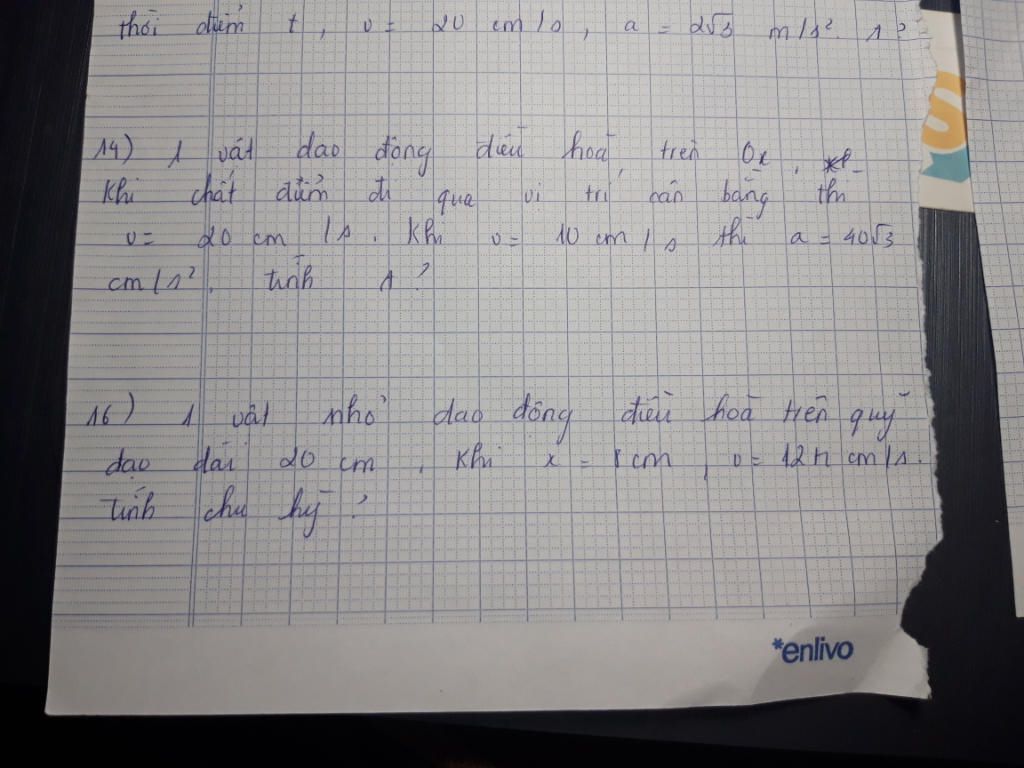 thời điểm t, v = 20 cm/s, a = 2√3 m/s². A?
14) 1 vật dao động điều hoà trên Ox.
Khi chất điểm đi qua vị trí cân bằng thì
v = 20 cm/s. Khi v = 10 cm/s thì a = 40√3
cm/s². tính A?
16) 1 vật nhỏ dao động điều hoà trên quỹ
đạo dài 20 cm, Khi x = 8cm, v = 12π cm/s.
Tính chu kỳ?
*enlivo